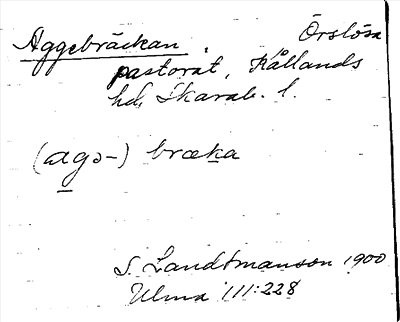 Aggebräckan. Örslösa
pastorat, Kållands
hd, Skarab. l.
(ago-) bræka
S. Landtmanson 1900
Ulma III:228